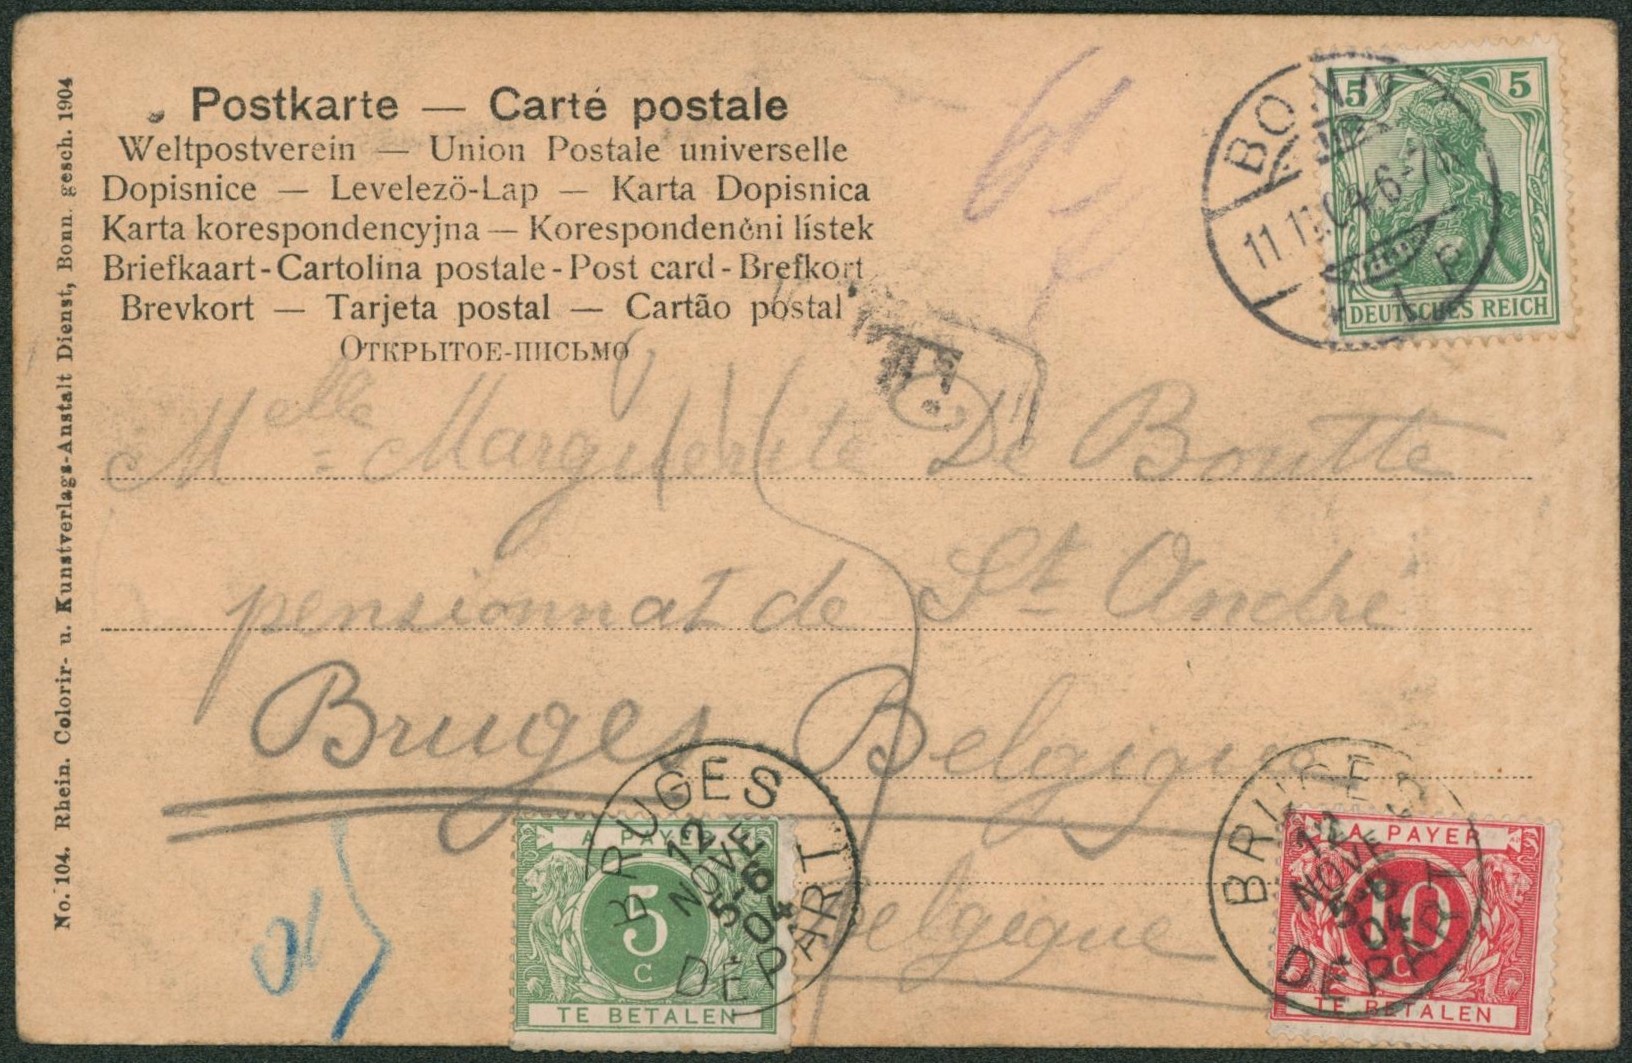 Postkarte — Carte postale
Weltpostverein — Union Postale universelle
Dopisnice — Levelezö-Lap — Karta Dopisnica
Karta korespondencyjna — Korespondenční lístek
Briefkaart - Cartolina postale - Post card - Brefkort
Brevkort — Tarjeta postal — Cartão postal
Открытое-письмо
No. 104. Rhein. Colorir- u. Kunstverlags-Anstalt Dienst, Bonn. gesch. 1904
5 5
DEUTSCHES REICH
BONN
11.11.04 6-7
T
Melle Marguerite De Boutte
pensionnat de St André
Bruges Belgique
Belgique
A PAYER
5
C
TE BETALEN
BRUGES
12
NOVE
5-6
04
DÉPART
A PAYER
10
C
TE BETALEN
BRUGES
12
NOVE
5-6
04
DÉPART